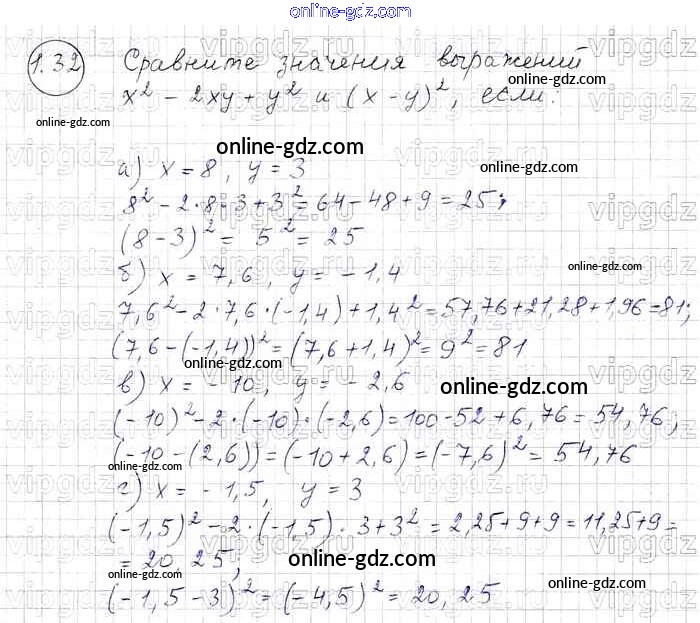 online-gdz.com
1.32 Сравните значения выражений
online-gdz.com
x² - 2xy + y² и (x - y)², если:
online-gdz.com
online-gdz.com
а) x = 8, y = 3
online-gdz.com
8² - 2·8·3 + 3² = 64 - 48 + 9 = 25;
(8 - 3)² = 5² = 25
б) x = 7,6, y = - 1,4
online-gdz.com
7,6² - 2·7,6·(-1,4) + 1,4² = 57,76 + 21,28 + 1,96 = 81;
(7,6 - (-1,4))² = (7,6 + 1,4)² = 9² = 81
online-gdz.com
в) x = - 10, y = - 2,6
online-gdz.com
(-10)² - 2·(-10)·(-2,6) = 100 - 52 + 6,76 = 54,76;
(-10 - (2,6)) = (-10 + 2,6) = (-7,6)² = 54,76
online-gdz.com
г) x = - 1,5, y = 3
(-1,5)² - 2·(-1,5)·3 + 3² = 2,25 + 9 + 9 = 11,25 + 9 =
= 20,25;
online-gdz.com
online-gdz.com
online-gdz.com
(-1,5 - 3)² = (-4,5)² = 20,25
vipgdz.ru